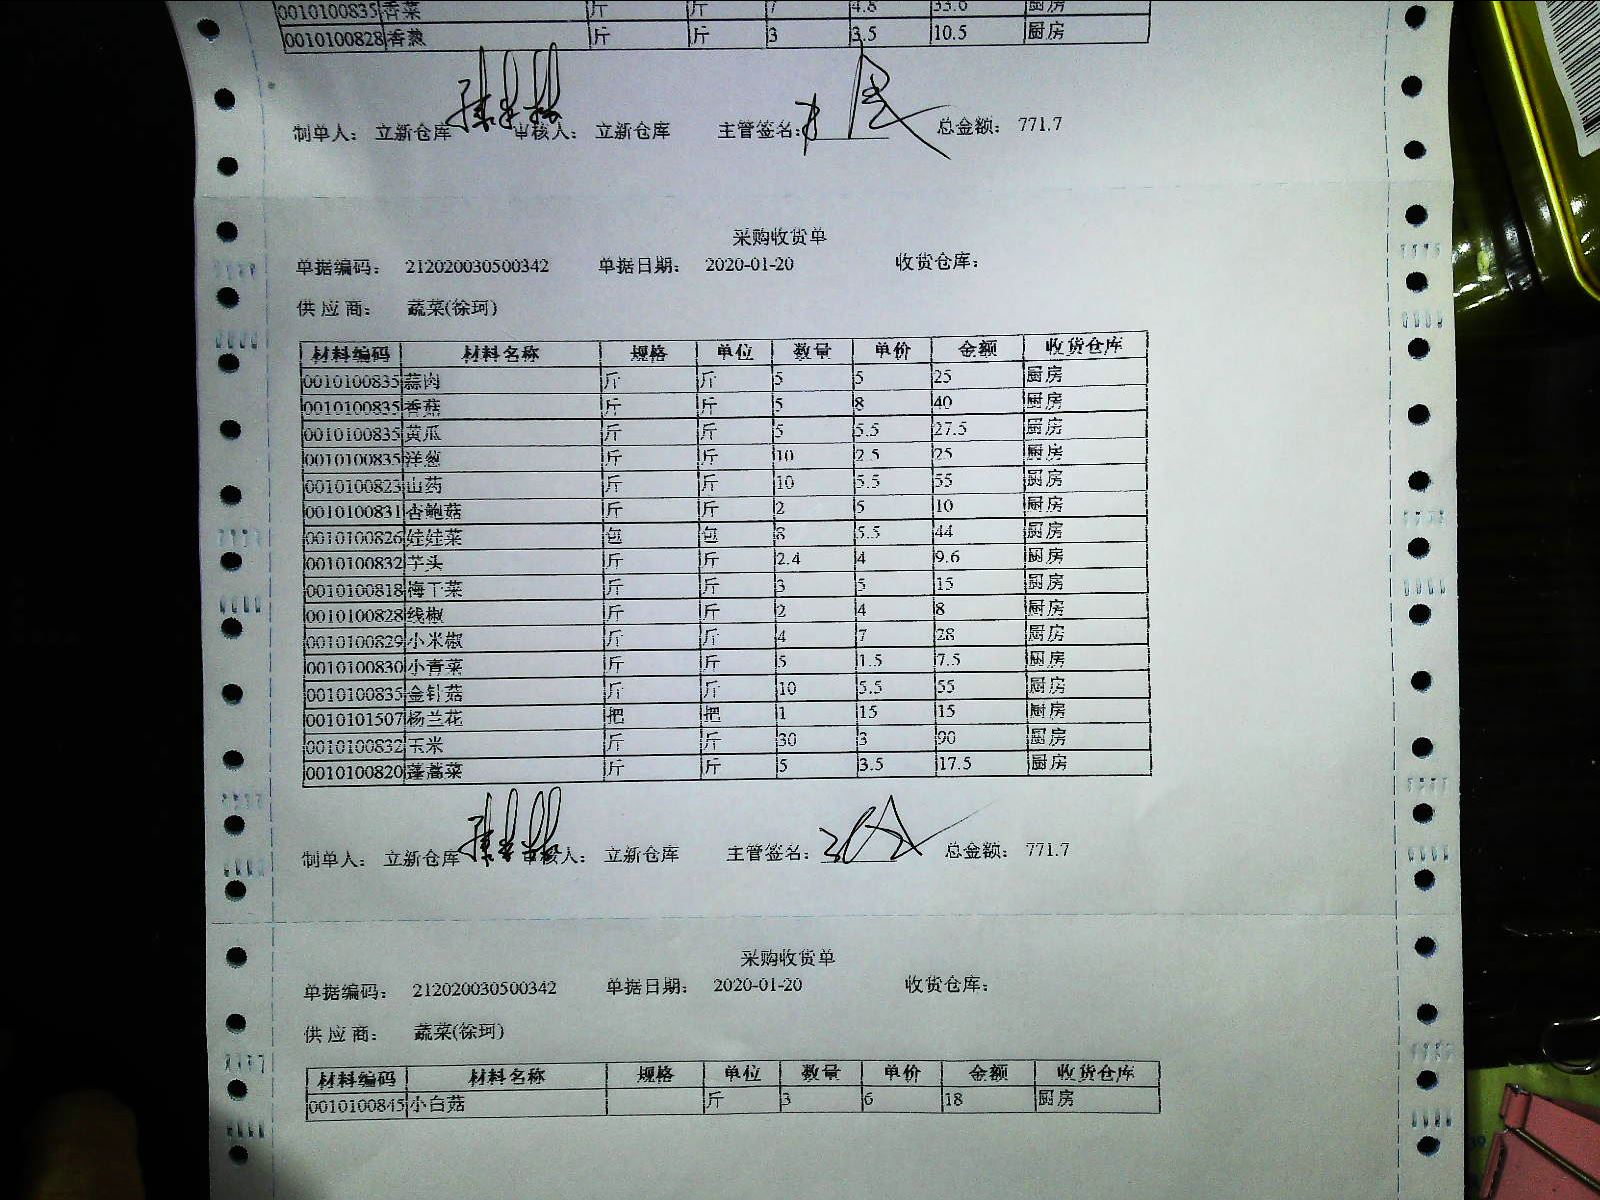 0010100835 香菜 斤 斤 7 4.8 33.6 厨房
0010100828 香葱 斤 斤 3 3.5 10.5 厨房
制单人: 立新仓库 审核人: 立新仓库 主管签名: 总金额: 771.7
采购收货单
单据编码: 212020030500342 单据日期: 2020-01-20 收货仓库:
供应商: 蔬菜(徐珂)
材料编码 材料名称 规格 单位 数量 单价 金额 收货仓库
0010100835 蒜肉 斤 斤 5 5 25 厨房
0010100835 香菇 斤 斤 5 8 40 厨房
0010100835 黄瓜 斤 斤 5 5.5 27.5 厨房
0010100835 洋葱 斤 斤 10 2.5 25 厨房
0010100823 山药 斤 斤 10 5.5 55 厨房
0010100831 杏鲍菇 斤 斤 2 5 10 厨房
0010100826 娃娃菜 包 包 8 5.5 44 厨房
0010100832 芋头 斤 斤 2.4 4 9.6 厨房
0010100818 梅干菜 斤 斤 3 5 15 厨房
0010100828 线椒 斤 斤 2 4 8 厨房
0010100829 小米椒 斤 斤 4 7 28 厨房
0010100830 小青菜 斤 斤 5 1.5 7.5 厨房
0010100835 金针菇 斤 斤 10 5.5 55 厨房
0010101507 杨兰花 把 把 1 15 15 厨房
0010100832 玉米 斤 斤 30 3 90 厨房
0010100820 蓬蒿菜 斤 斤 5 3.5 17.5 厨房
制单人: 立新仓库 审核人: 立新仓库 主管签名: 总金额: 771.7
采购收货单
单据编码: 212020030500342 单据日期: 2020-01-20 收货仓库:
供应商: 蔬菜(徐珂)
材料编码 材料名称 规格 单位 数量 单价 金额 收货仓库
0010100845 小白菇 斤 3 6 18 厨房